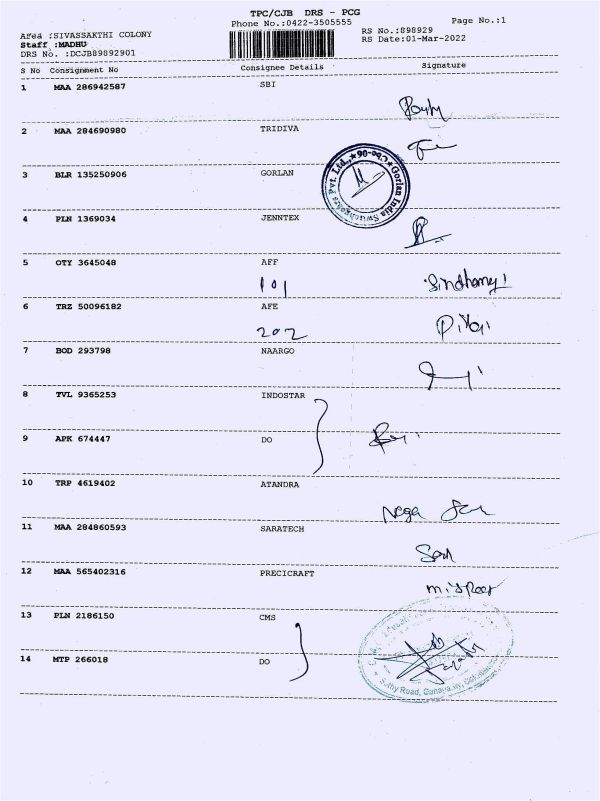 TPC/CJB DRS - PCG
Phone No.:0422-3505555 Page No.:1
Area :SIVASSAKTHI COLONY RS No.:898929
Staff :MADHU RS Date:01-Mar-2022
DRS No. :DCJB89892901
S No Consignment No Consignee Details Signature
1 MAA 286942587 SBI
2 MAA 284690980 TRIDIVA
3 BLR 135250906 GORLAN
Gorlan India Switchgears Pvt. Ltd., ★ Cbe-06 ★
4 PLN 1369034 JENNTEX
5 OTY 3645048 AFF
101
6 TRZ 50096182 AFE
202
7 BOD 293798 NAARGO
8 TVL 9365253 INDOSTAR
9 APK 674447 DO
10 TRP 4619402 ATANDRA
11 MAA 284860593 SARATECH
12 MAA 565402316 PRECICRAFT
13 PLN 2186150 CMS
14 MTP 266018 DO
Road, Ganapathy,